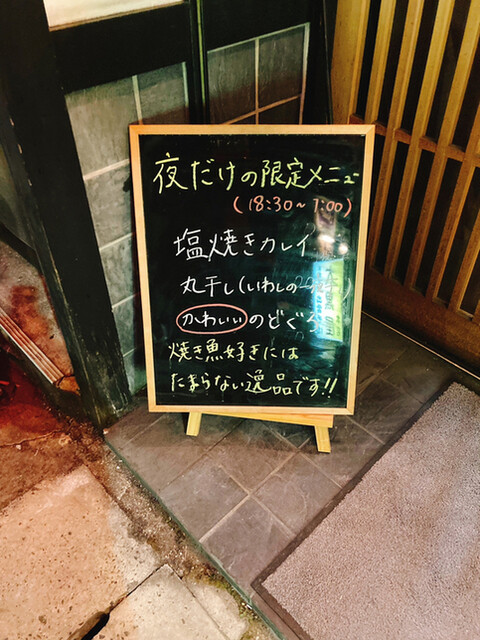 夜だけの限定メニュー
(18:30~1:00)
塩焼きカレイ
丸干し(いわしの
かわいい のどぐろ
焼き魚好きには
たまらない逸品です!!